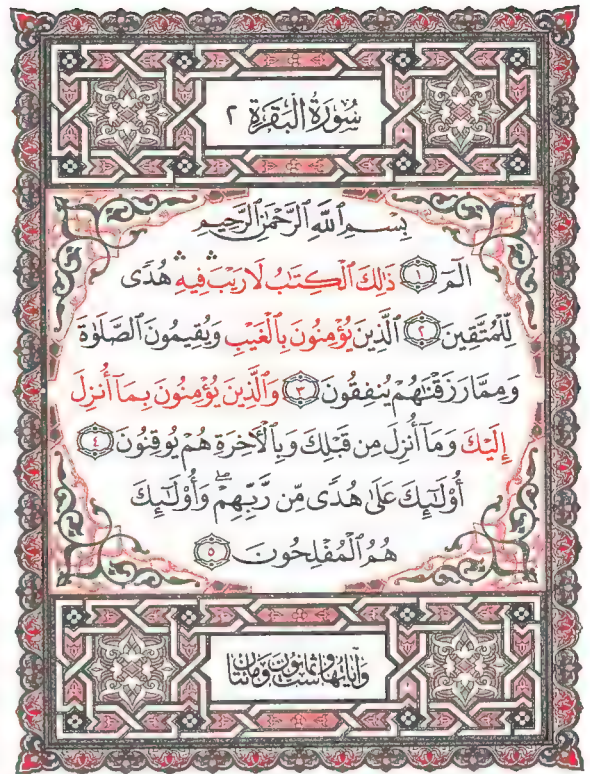 سُورَةُ الْبَقَرَةِ ٢
بِسْمِ ٱللَّهِ ٱلرَّحْمَٰنِ ٱلرَّحِيمِ
الٓمٓ ١ ذَٰلِكَ ٱلْكِتَٰبُ لَا رَيْبَ ۛ فِيهِ ۛ هُدًى
لِّلْمُتَّقِينَ ٢ ٱلَّذِينَ يُؤْمِنُونَ بِٱلْغَيْبِ وَيُقِيمُونَ ٱلصَّلَوٰةَ
وَمِمَّا رَزَقْنَٰهُمْ يُنفِقُونَ ٣ وَٱلَّذِينَ يُؤْمِنُونَ بِمَآ أُنزِلَ
إِلَيْكَ وَمَآ أُنزِلَ مِن قَبْلِكَ وَبِٱلْءَاخِرَةِ هُمْ يُوقِنُونَ ٤
أُو۟لَٰٓئِكَ عَلَىٰ هُدًى مِّن رَّبِّهِمْ ۖ وَأُو۟لَٰٓئِكَ
هُمُ ٱلْمُفْلِحُونَ ٥
وَآيَاتُهَا سِتٌّ وَثَمَانُونَ وَمِائَتَانِ